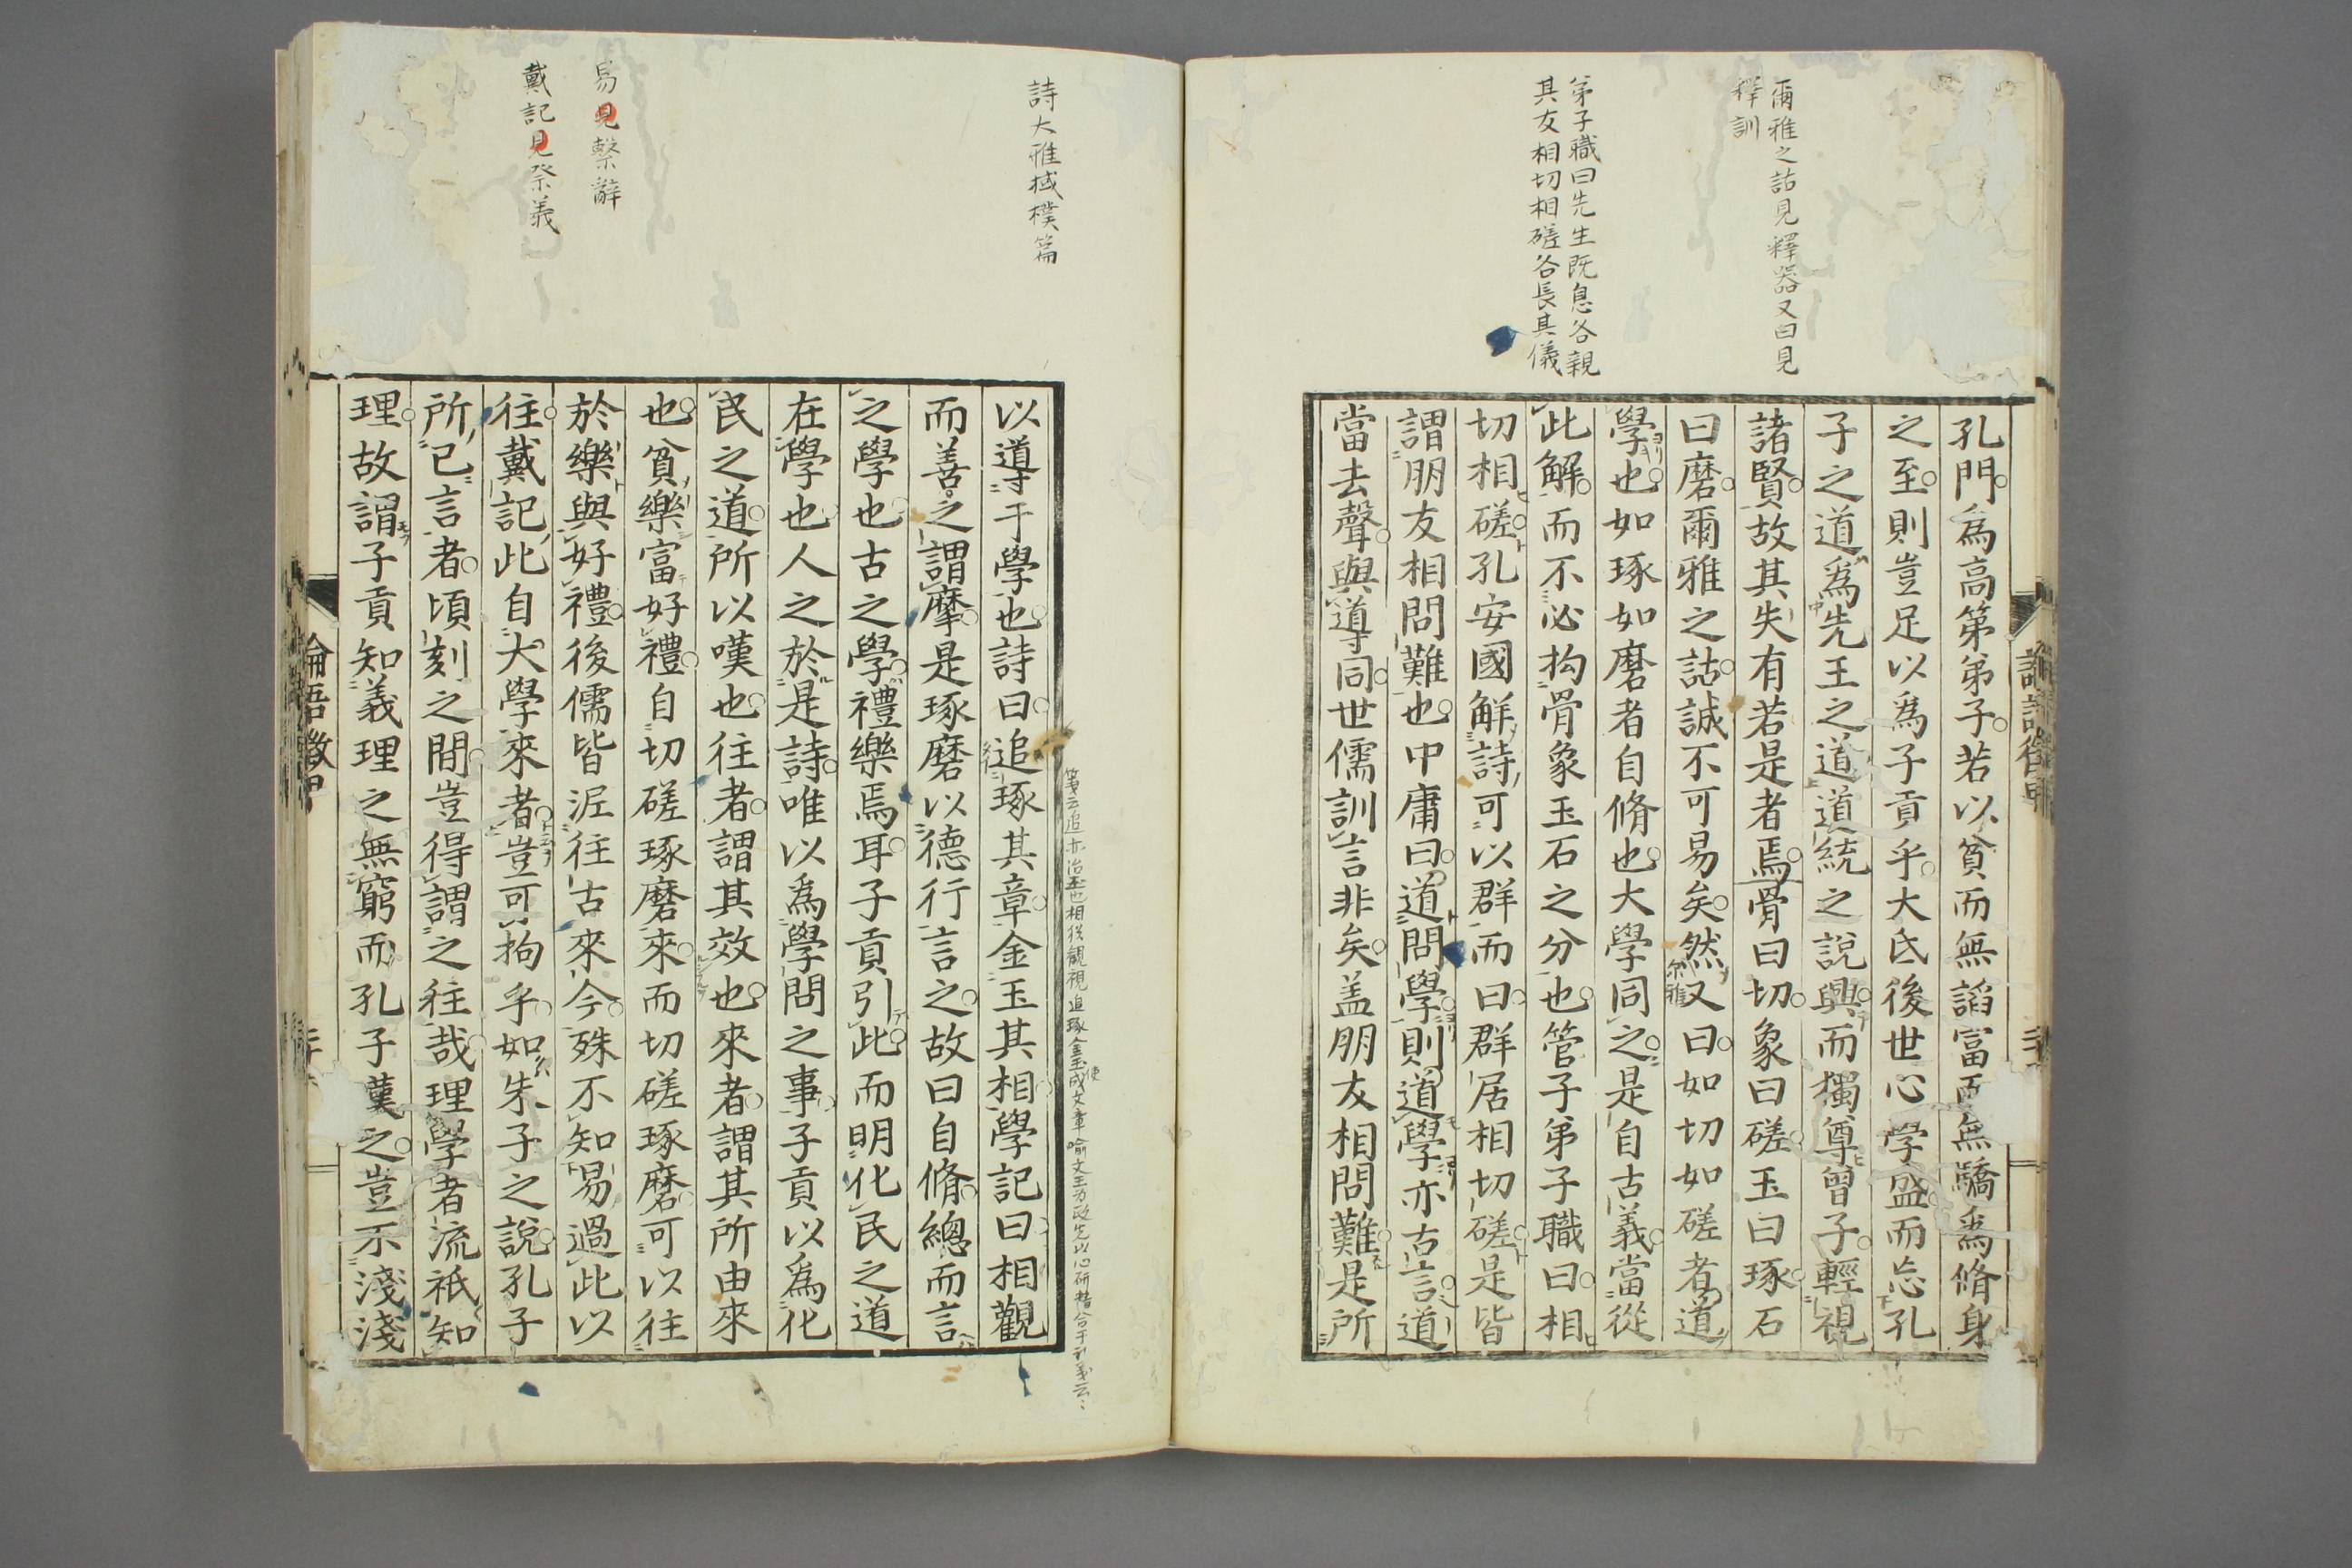 爾雅之詁見釋器又曰見
釋訓
弟子職曰先生既息各親
其友相切相磋各長其儀
孔門爲高第弟子若以貧而無諂富而無驕爲脩身
之至則豈足以爲子貢乎大氐後世心學盛而忘孔
子之道爲先王之道道統之說興而獨尊曾子輕視
諸賢故其失有若是者焉骨曰切象曰磋玉曰琢石
曰磨爾雅之詁誠不可易矣然又曰如切如磋者道
爾雅
學也如琢如磨者自脩也大學同之是自古義當從
此解而不必拘骨象玉石之分也管子弟子職曰相
切相磋孔安國解詩可以群而曰群居相切磋是皆
謂朋友相問難也中庸曰道問學則道學亦古言道
當去聲與導同世儒訓言非矣盖朋友相問難是所
論語徵甲
詩大雅棫樸篇
易見繫辭
戴記見祭義
箋云追亦治玉也相從觀視追琢金玉使成文章喩文王為政先以心研精合于礼義云〻
以導于學也詩曰追琢其章金玉其相學記曰相觀
而善之謂摩是琢磨以德行言之故曰自脩總而言
之學也古之學禮樂焉耳子貢引此而明化民之道
在學也人之於是詩唯以爲學問之事子貢以爲化
民之道所以嘆也往者謂其效也來者謂其所由來
也貧樂富好禮自切磋琢磨來而切磋琢磨可以往
於樂與好禮後儒皆泥往古來今殊不知易過此以
往戴記此自大學來者豈可拘乎如朱子之說孔子
所已言者頃刻之間豈得謂之往哉理學者流祇知
理故謂子貢知義理之無窮而孔子嘆之豈不淺淺
論語徵甲